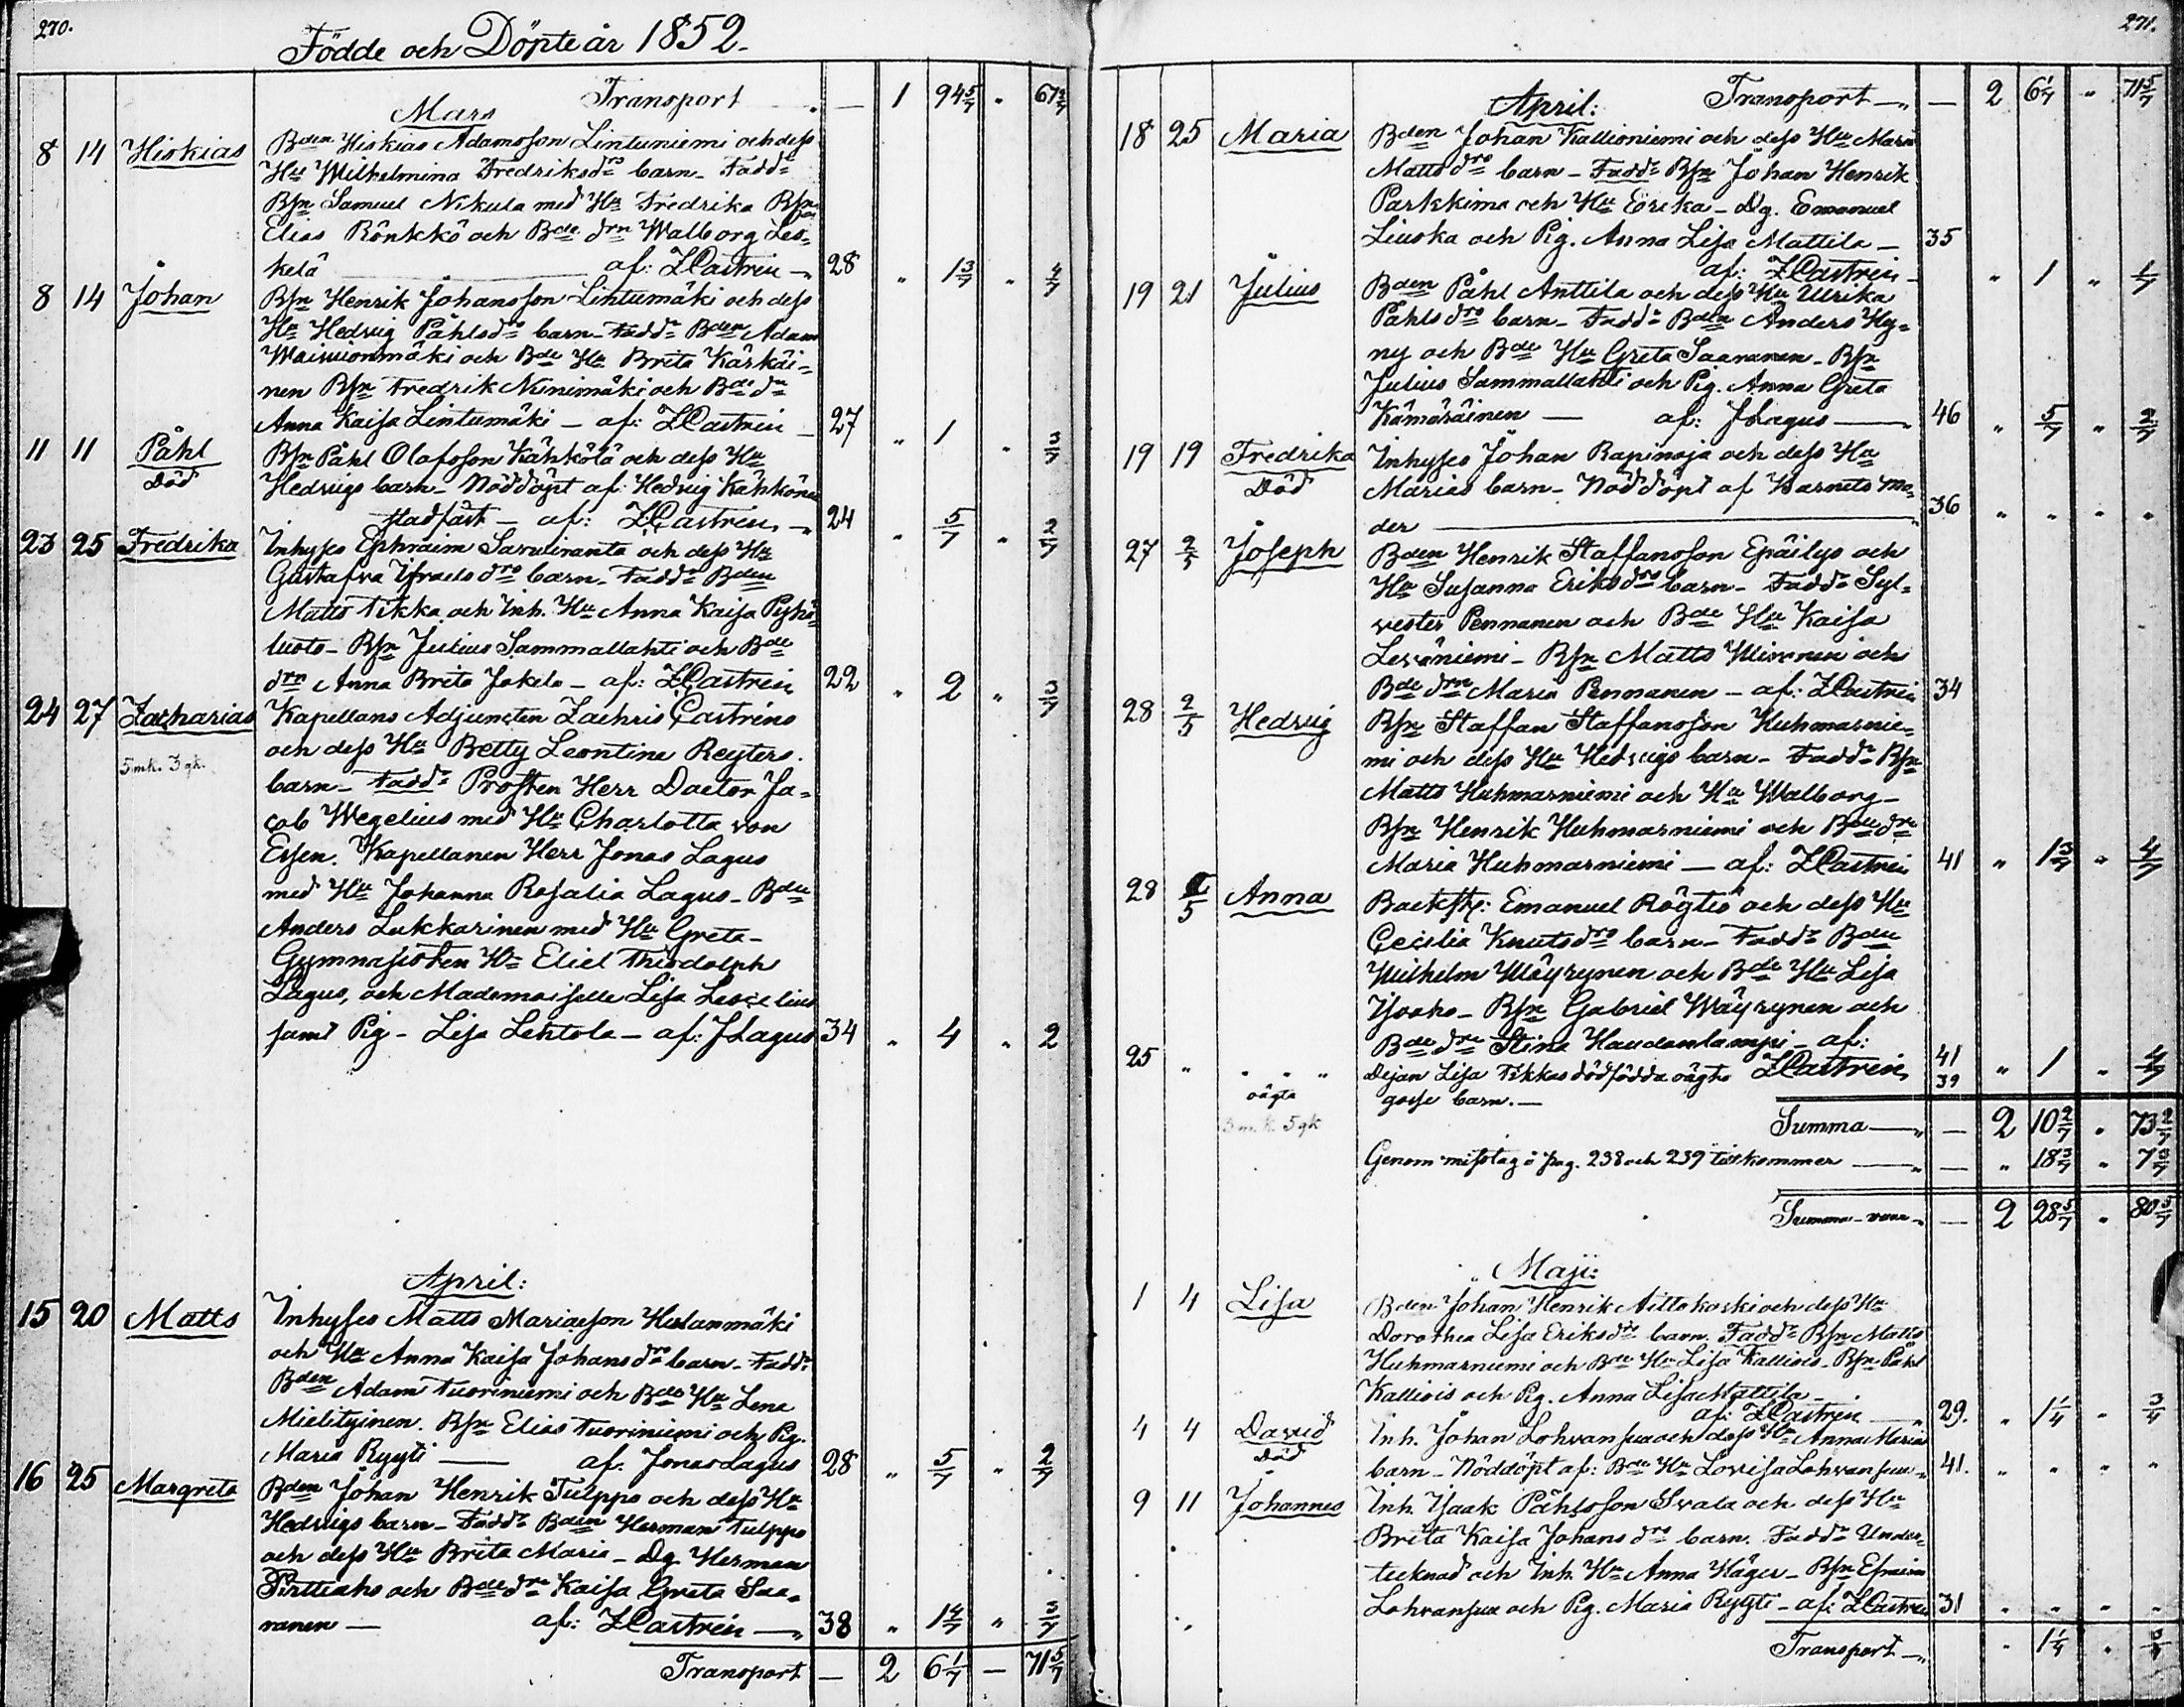 270.
Födde och Döpte år 1852.
Mars Transport — 1 94 5/7 " 67 3/7
8 14 Hiskias Bden Hiskias Adamsson Lintuniemi och dess
Hu Wilhelmina Fredriksdr barn - Fadd:
Bsn Samuel Nikula med Hu Fredrika Bsn
Elias Rönkkö och Bde drn Walborg Les=
kelä af: Z Castrén 28 " 1 3/7 " 4/7
8 14 Johan Bsn Henrik Johansson Lintumäki och dess
Hu Hedvig Påhlsdr barn - Fadd: Bden Adam
och Bde Hu Brita Kärkäi=
nen Bsn Fredrik Niinimäki och Bde dn
Anna Kaisa Lintumäki - af: Z Castrén 27 " 1 "
11 11 Påhl Bsn Påhl Olofsson Kähkölä och dess Hu
Död Hedvigs barn - Nöddöpt af: Hedvig Kähkönen
stadfäst - af: Z Castrén 24 " 5/7 " 2/7
23 25 Fredrika Inhyses Ephraim Savuiranta och dess Hu
Gustafva Israelsdrs barn - Fadd: Bden
Matts Tikka och Inh. Hu Anna Kaisa Pyhä=
luoto - Bsn Julius Sammallahti och Bde
drn Anna Brita Jokela - af: Z Castrén 22 " 2 " 3/7
24 27 Zacharias Kapellans Adjuncten Zachris Castréns
och dess Hu Betty Leontine Reyters
5 mk. 3 gk. barn - Fadd: Prosten Herr Doctor Ja=
cob Wegelius med Hu Charlotta von
Essen. Kapellanen Herr Jonas Lagus
med Hu Johanna Rosalia Lagus - Bden
Anders Lukkarinen med Hu Greta -
Gymnasisten Hr Eliel Thiodolph
Lagus, och Mademoiselle Lisa
samt Pig - Lisa Lehtola - af: J Lagus 34 " 4 " 2
April:
15 20 Matts Inhyses Matts Mariasson Hulanmäki
och Hu Anna Kaisa Johansdr barn - Fadd:
Bden Adam Tuoriniemi och Bdes Hu Lena
Mielityinen. Bsn Elias Tuoriniemi och Pig.
Maria Ryyti — af: Jonas Lagus 28 " 5/7 " 2/7
16 25 Margreta Bden Johan Henrik Tulppo och dess Hu
Hedvigs barn - Fadd: Bden Herman Tulppo
och dess Hu Brita Maria - Dg. Herman
Pirttiaho och Bde drn Kaisa Greta Saa=
ranen — af: Z Castrén — 38 " 1 4/7 " 3/7
Transport — 2 6 1/7 — 71 5/7
271.
April: Transport — 2 6 1/7 " 71 5/7
18 25 Maria Bden Johan Kallioniemi och dess Hu Maria
Mattsdrs barn - Fadd: Bsn Johan Henrik
Parkkima och Hu Erika - Dg. Emanuel
Liuska och Pig. Anna Lisa Mattila - 35
af: Z Castrén - " 1 "
19 21 Julius Bden Påhl Anttila och dess Hu Ulrika
Påhlsdrs barn - Fadd: Bden Anders Hy=
ny och Bde Hu Greta Saaranen - Bsn
Julius Sammallahti och Pig. Anna Greta
Kämäräinen — af: J Lagus — 46 " 5/7 " 2/7
19 19 Fredrika Inhyses Johan Rapinoja och dess Hu
Död Marias barn - Nöddöpt af Barnets mo=
der — 36 " " " "
27 2/5 Joseph Bden Henrik Staffansson Epäilys och
Hu Susanna Eriksdrs barn - Fadd: Syl=
vester Pennanen och Bde Hu Kaisa
Leväniemi - Bsn Matts och
Bde drn Maria Pennanen - af: Z Castrén 34
28 2/5 Hedvig Bsn Staffan Staffansson Huhmarnie=
mi och dess Hu Hedvigs barn - Fadd: Bsn
Matts Huhmarniemi och Hu Walborg -
Bsn Henrik Huhmarniemi och Bde drn
Maria Huhmarniemi — af: Z Castrén 41 " 1 3/7 " 4/7
28 Anna Emanuel Röytiö och dess Hu
Cecilia Knutsdrs barn - Fadd: Bden
Wilhelm Wäyrynen och Bde Hu Lisa
Ysoaho - Bsn Gabriel Wäyrynen och
Bde drn Stina Haudanlampi - af:
Z Castrén 41 " 1 " 4/7
25 " " " " Dejan Lisa Tikkas dödfödda oägta 39
oägta gosse barn. —
5 mk. 5 gk
Summa — 2 10 2/7 " 73 2/7
Genom misstag å pag. 238 och 239 tillkommer — " 18 3/7 " 7 3/7
Summa — 2 28 5/7 " 80 5/7
Maji:
1 4 Lisa Bden Johan Henrik Aittokoski och dess Hu
Dorothea Lisa Eriksdrs barn. Fadd: Bsn Matts
Huhmarniemi och Bde Hu Lisa Kalliois - Bsn Påhl
Kalliois och Pig. Anna Lisa Mattila -
af: Z Castrén 29. " 1 1/4 " 3/4
4 4 David Inh. Johan Lohvansuu och dess Hu Anna Marias
Död barn - Nöddöpt af: Bde Hu Lovisa Lohvansuu 41. " " " "
9 11 Johannes Inh. Isaak Påhlsson Svala och dess Hu
Brita Kaisa Johansdrs barn. Fadd: Under=
tecknad och Inh. Hu Anna Häger - Bsn Efraim
Lohvansuu och Pig. Maria Ryyti - af: Z Castrén 31 " " " "
Transport — " 1 1/4 " 3/4